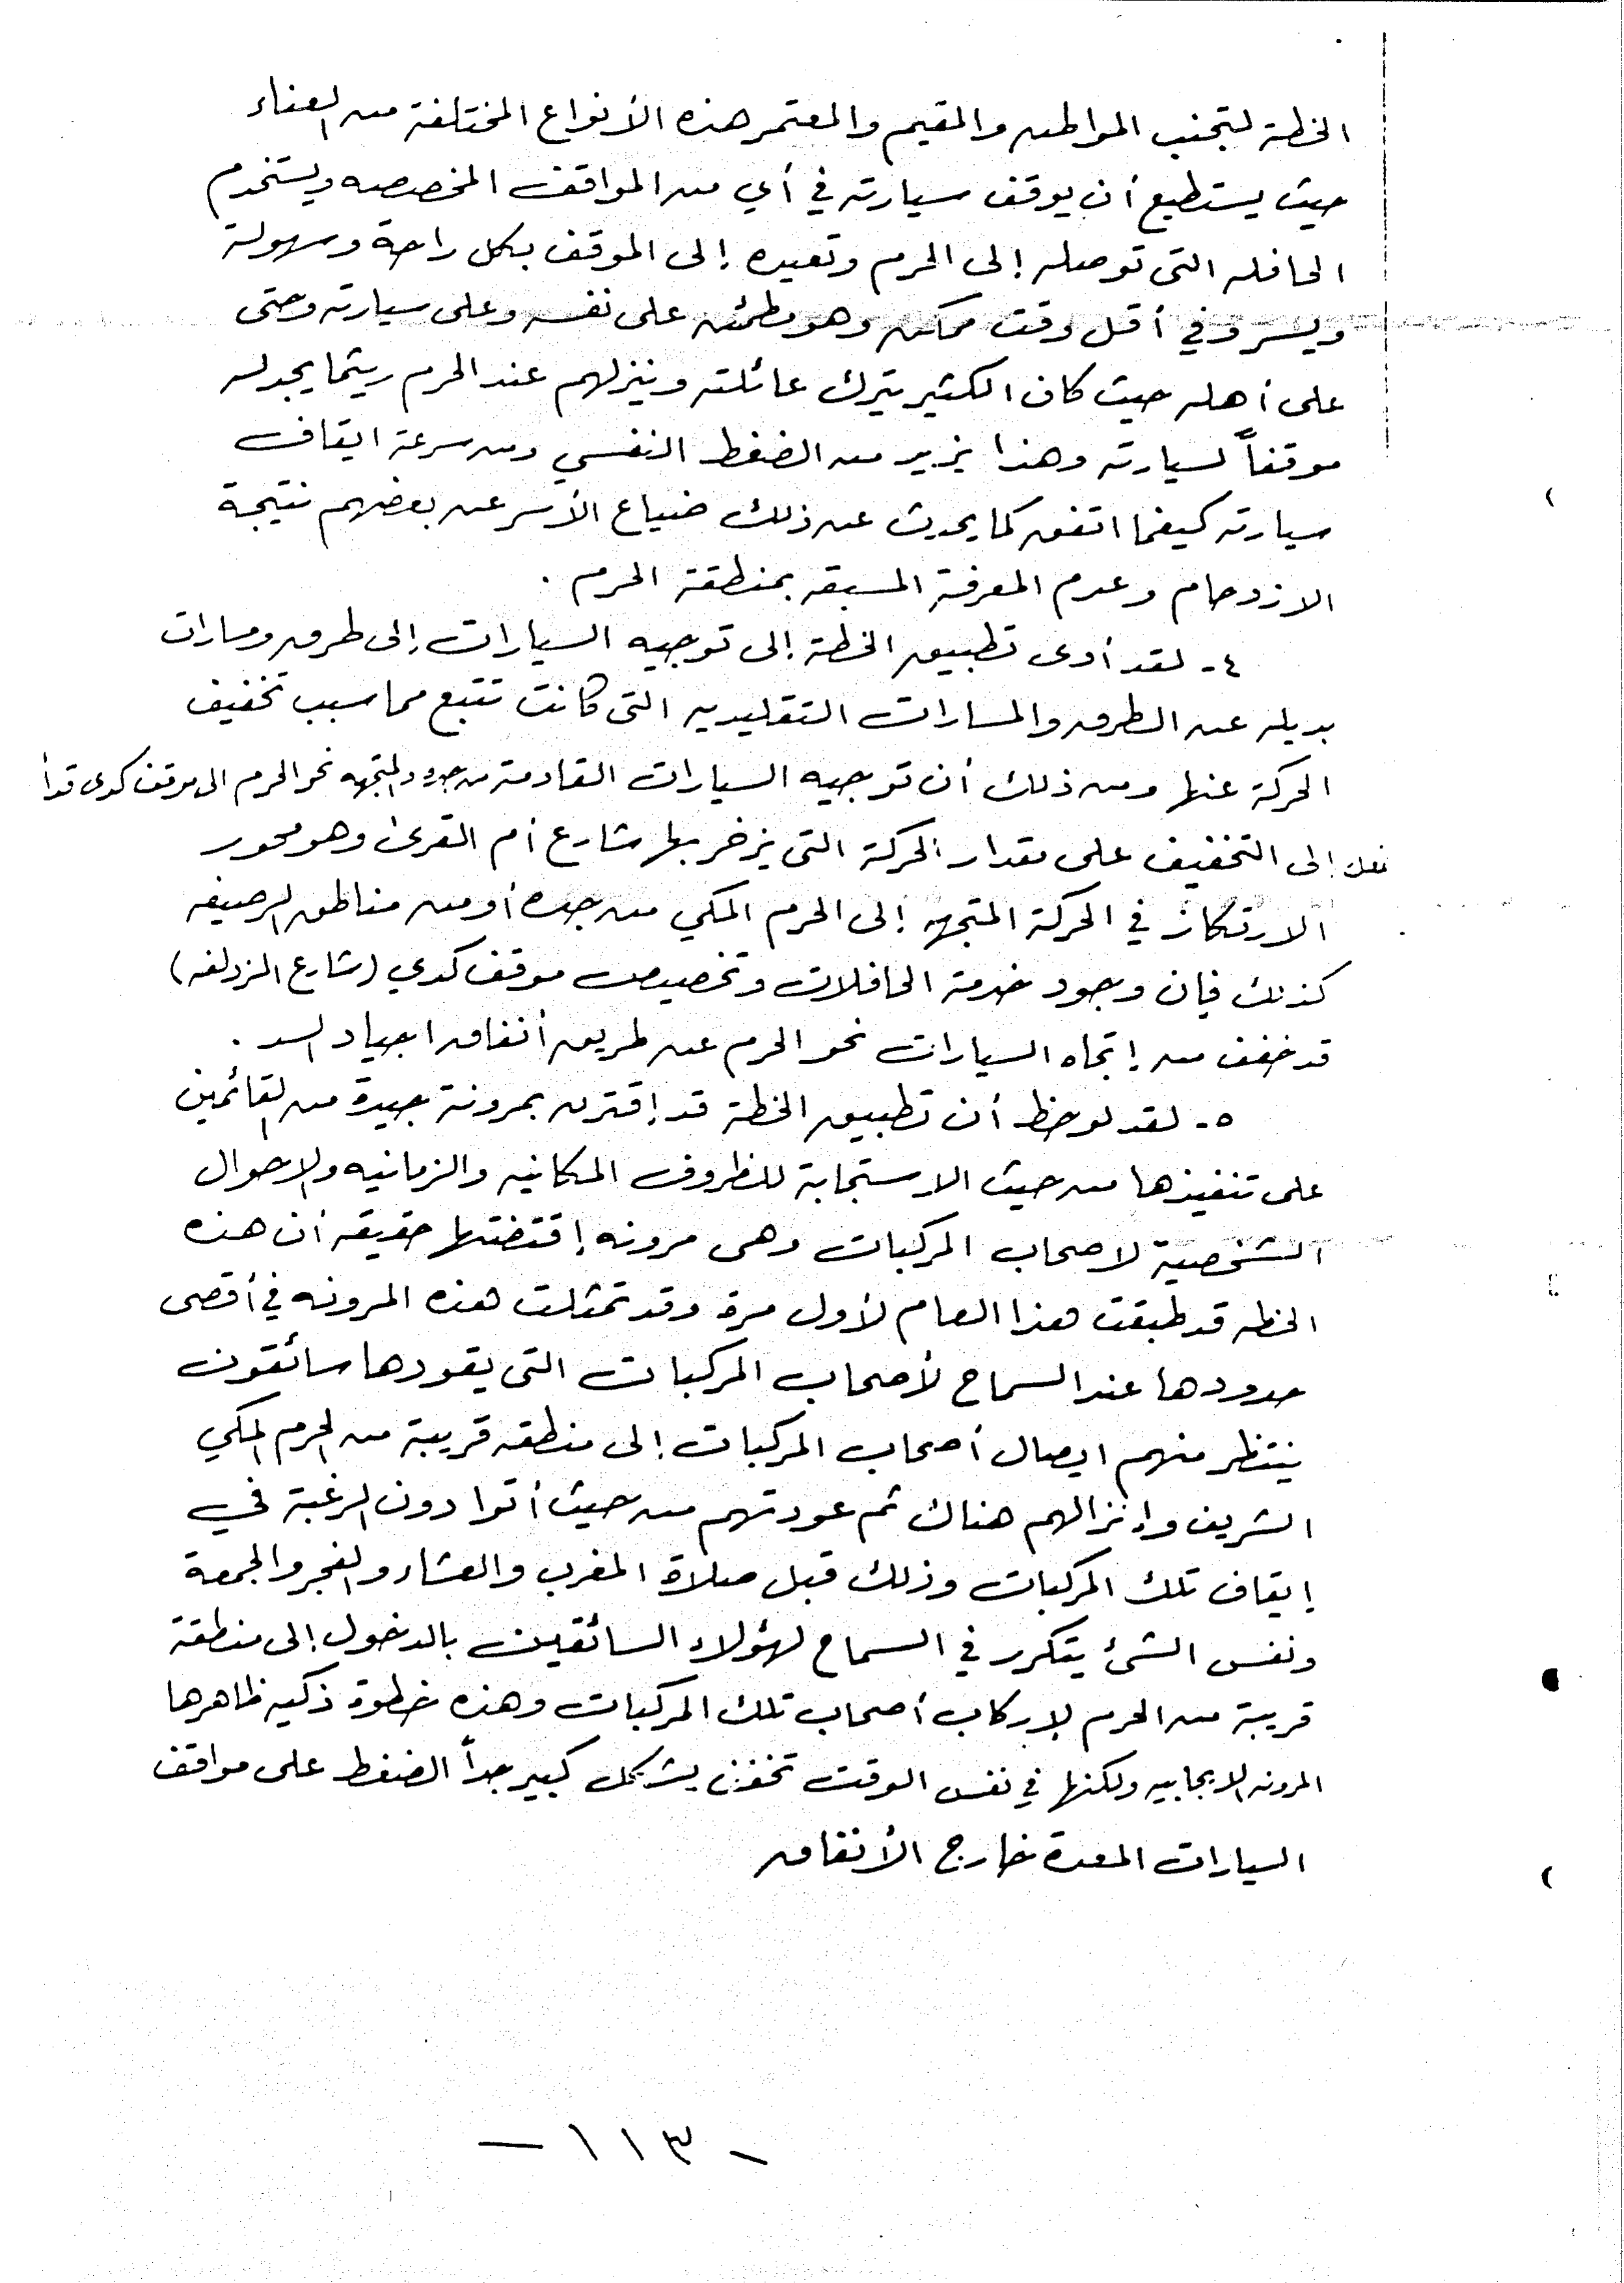 الخطة لتجنب المواطن والمقيم والمعتمر هذه الأنواع المختلفة من العناء
حيث يستطيع أن يوقف سيارته في أي من المواقف المخصصه ويستخدم
الحافله التى توصله إلى الحرم وتعيده إلى الموقف بكل راحة وسهولة
ويسر وفي أقل وقت ممكن وهو مطمئن على نفسه وعلى سيارته وحتى
على أهله حيث كان الكثير يترك عائلته وينزلهم عند الحرم ريثما يجد له
موقفاً لسيارته وهذا يزيد من الضغط النفسي ومن سرعة ايقاف
سيارته كيفما اتفق كما يحدث عن ذلك ضياع الأسر عن بعضهم نتيجة
الازدحام وعدم المعرفة المسبقه بمنطقة الحرم .
٤- لقد أدى تطبيق الخطة إلى توجيه السيارات إلى طرق ومسارات
بديله عن الطرق والمسارات التقليديه التى كانت تتبع مما سبب تخفيف
الحركة عنها ومن ذلك أن توجيه السيارات القادمة من جده والمتجهه نحو الحرم الى موقف كدى قد أ
إلى التخفيف على مقدار الحركة التى يزخر بها شارع أم القرى وهو محور
الارتكاز في الحركة المتجهه إلى الحرم المكي من جده أو من مناطق الرصيفه
كذلك فإن وجود خدمة الحافلات وتخصيص موقف كدي (شارع المزدلفه)
قد خفف من إتجاه السيارات نحو الحرم عن طريق أنفاق اجياد السد .
٥- لقد لوحظ أن تطبيق الخطة قد إقترن بمرونة جيدة من القائمين
على تنفيذها من حيث الاستجابة للظروف المكانيه والزمانيه والاحوال
الشخصية لاصحاب المركبات وهى مرونه إقتضتها حقيقة أن هذه
الخطه قد طبقت هذا العام لأول مرة وقد تمثلت هذه المرونه في أقصى
حدودها عند السماح لأصحاب المركبات التى يقودها سائقون
ينتظر منهم ايصال أصحاب المركبات إلى منطقه قريبة من الحرم المكي
الشريف وإنزالهم هناك ثم عودتهم من حيث أتوا دون الرغبة في
إيقاف تلك المركبات وذلك قبل صلاة المغرب والعشاء والفجر والجمعة
ونفس الشئ يتكرر في السماح لهؤلاء السائقين بالدخول إلى منطقة
قريبة من الحرم لإركاب أصحاب تلك المركبات وهذه خطوة ذكيه ظاهرها
المرونه الايجابيه ولكنها في نفس الوقت تخفف بشكل كبير جداً الضغط على مواقف
السيارات المعدة خارج الأنفاق
- ١١٣ -